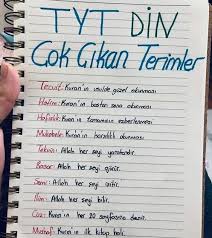 TYT DİN
Çok Çıkan Terimler
Tecvit: Kuran'ın usulde güzel okunması
Hatim: Kuran'ın baştan sona okunması
Hafızlık: Kuran'ın tamamının ezberlenmesi
Mukabele: Kuran'ın karşılıklı okunması
Tekvin: Allah her şeyi yaratandır.
Basar: Allah her şeyi görür.
Semi: Allah her şeyi işitir.
İlim: Allah her şeyi bilir.
Cüz: Kuran'ın her 20 sayfasına denir.
Mushaf: Kuran'ın ilk kitap hali.